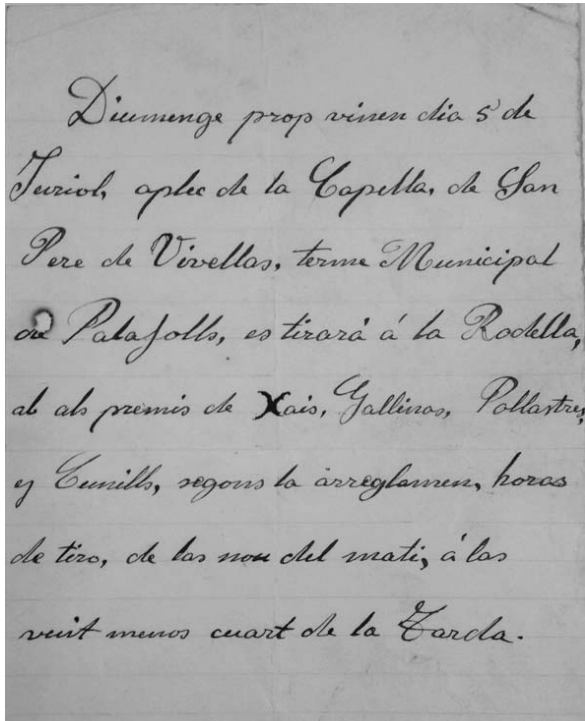 Diumenge prop vinen dia 5 de
Juriol, aplec de la Capella, de San
Pere de Vivellas, terme Municipal
de Palafolls, es tirará á la Rodella,
ab als premis de Xais, Gallinas, Pollastres,
y Cunills, segons la arreglamen, horas
de tiro, de las nou del mati, á las
vuit menos cuart de la Tarda.